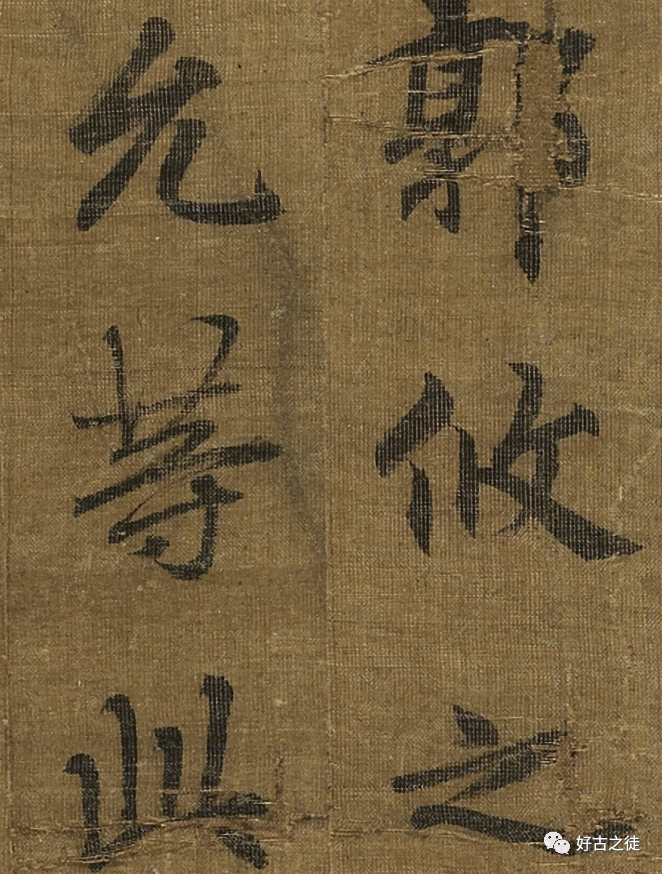 郭攸之
允等此
好古之徒